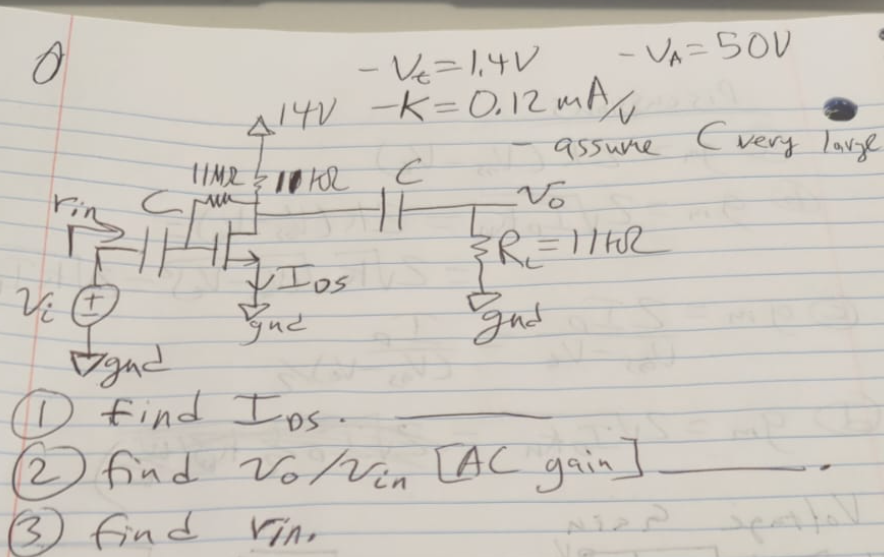 - Vt = 1.4V - VA = 50V
14V - K = 0.12 mA/V
- assume C very large
11MΩ 11kΩ C
rin C Vo
RL = 11kΩ
IDS
Vi + -
gnd gnd
gnd
① find IDS. ______
② find Vo/Vin [AC gain] ______.
③ find rin.